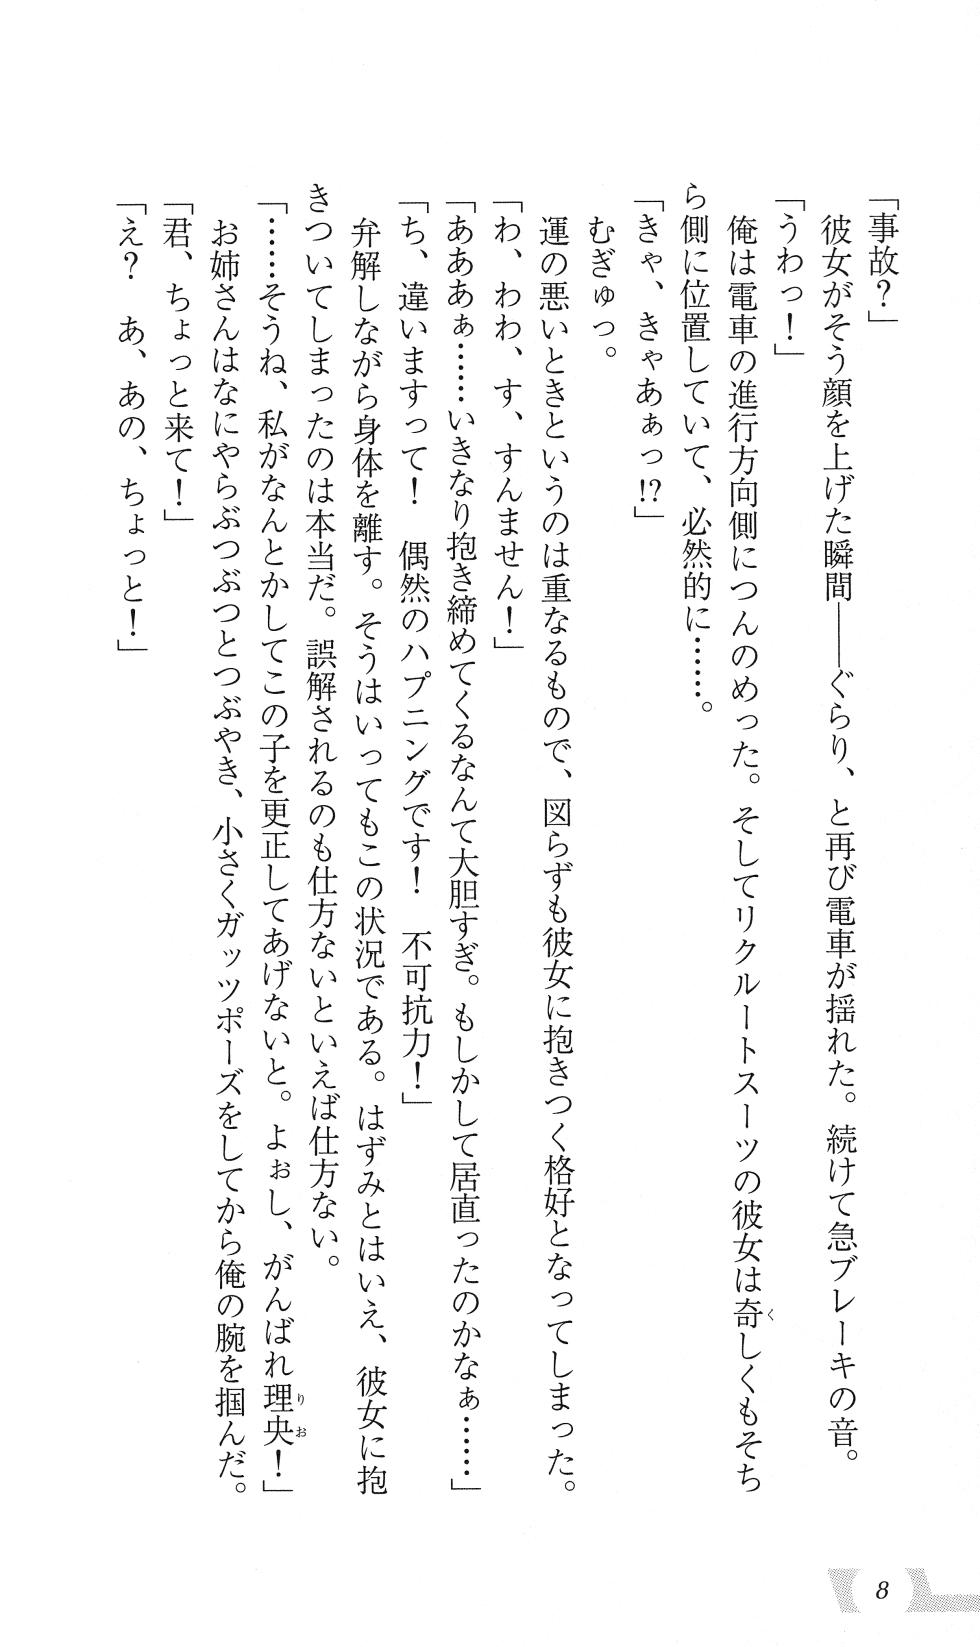 「事故？」
彼女がそう顔を上げた瞬間――ぐらり、と再び電車が揺れた。続けて急ブレーキの音。
「うわっ！」
俺は電車の進行方向側につんのめった。そしてリクルートスーツの彼女は奇しくもそち
ら側に位置していて、必然的に……。
「きゃ、きゃあぁっ!?」
むぎゅっ。
運の悪いときというのは重なるもので、図らずも彼女に抱きつく格好となってしまった。
「わ、わわ、す、すんません！」
「あああぁ……いきなり抱き締めてくるなんて大胆すぎ。もしかして居直ったのかなぁ……」
「ち、違いますって！　偶然のハプニングです！　不可抗力！」
弁解しながら身体を離す。そうはいってもこの状況である。はずみとはいえ、彼女に抱
きついてしまったのは本当だ。誤解されるのも仕方ないといえば仕方ない。
「……そうね、私がなんとかしてこの子を更正してあげないと。よぉし、がんばれ理央！」
お姉さんはなにやらぶつぶつとつぶやき、小さくガッツポーズをしてから俺の腕を掴んだ。
「君、ちょっと来て！」
「え？　あ、あの、ちょっと！」
く
りお
8